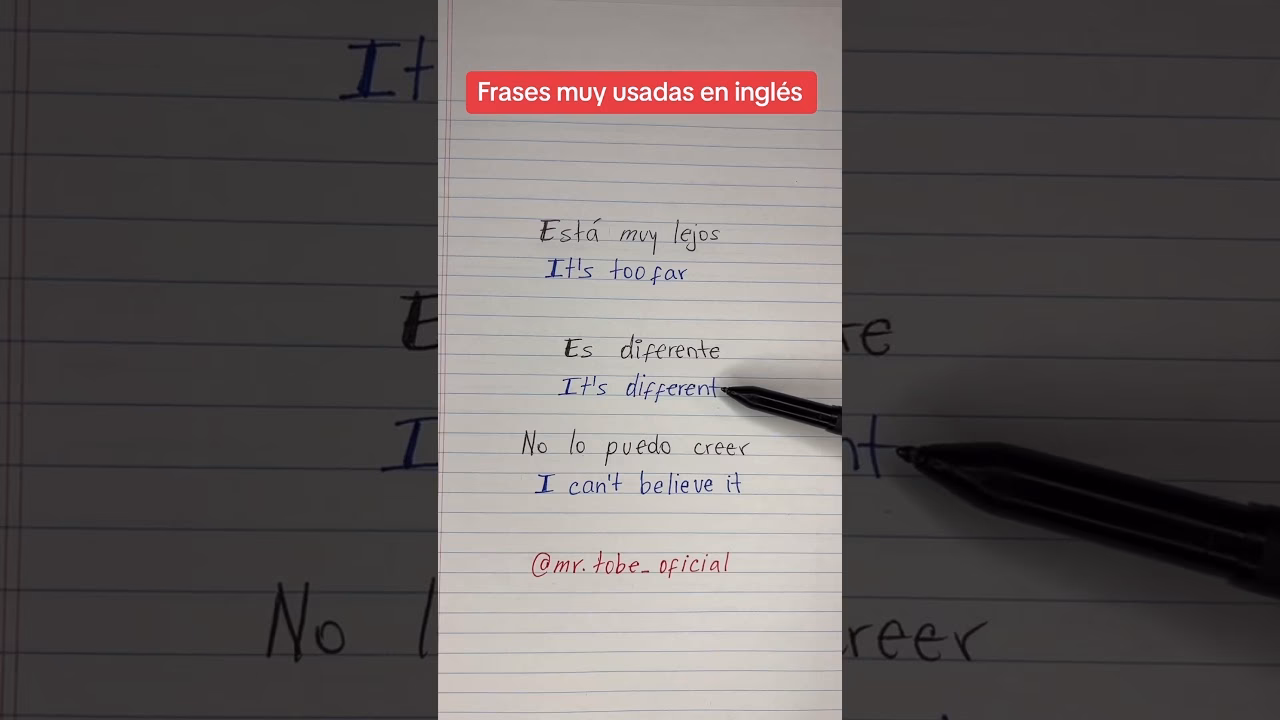 Frases muy usadas en inglés
Está muy lejos
It's too far
Es diferente
It's different
No lo puedo creer
I can't believe it
@mr.tobe_oficial